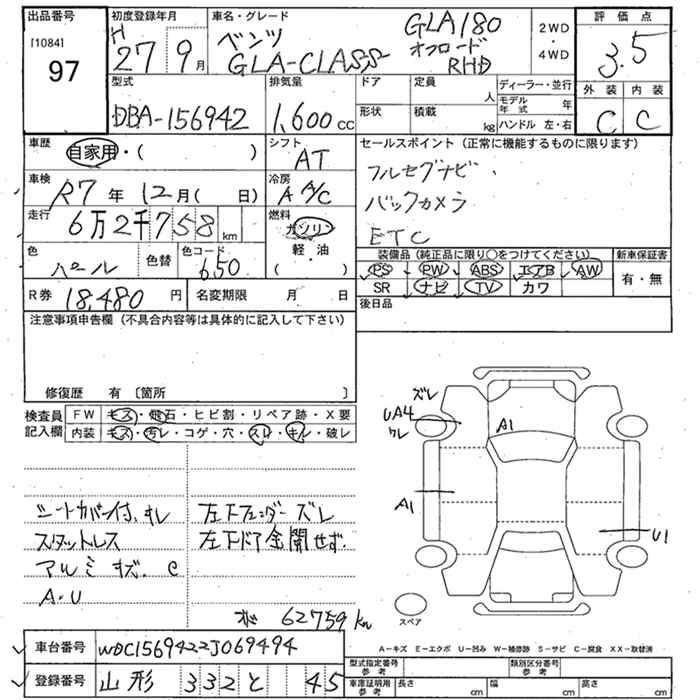 出品番号 初度登録年月 車名・グレード 2WD・4WD 評価点
[1084] 97 H27年9月 ベンツ GLA-CLASS GLA180 オフロード RHD 3.5
型式 排気量 ドア 定員 人 ディーラー・並行 外装 内装
DBA-156942 1,600cc 形状 積載 kg モデル年式 年 ハンドル 左・右 C C
車歴 自家用・( ) シフト AT セールスポイント (正常に機能するものに限ります)
車検 R7年12月( 日) 冷房 A A/C フルセグナビ、
走行 6万2千758km 燃料 ガソリン・軽・油 ( ・ ) バックカメラ
ETC
色 パール 色替 色コード 650 装備品 (純正品に限り○をつけてください) 新車保証書
PS PW ABS エアB AW 有・無
R券 18,480円 名変期限 月 日 SR ナビ TV カワ
注意事項申告欄 (不具合内容等は具体的に記入して下さい) 後日品
修復歴 有 〔箇所 〕
検査員 FW キズ・飛石・ヒビ割・リペア跡・X要
記入欄 内装 キズ・汚レ・コゲ・穴・スレ・キレ・破レ
ズレ
UA4
ワレ
A1
A1
U1
シートカバー付、キレ 左下フェンダーズレ
スタットレス 左下ドア全開せず.
アルミキズ.C
A・U
62759km
スペア
A-キズ E-エクボ U-凹み W-補修跡 S-サビ C-腐食 XX-取替済
車台番号 WDC1569422J069494 型式指定番号 参考 類別区分番号 参考
登録番号 山形 332 と 45 車庫証明用 参考 長さ cm 幅 cm 高さ cm